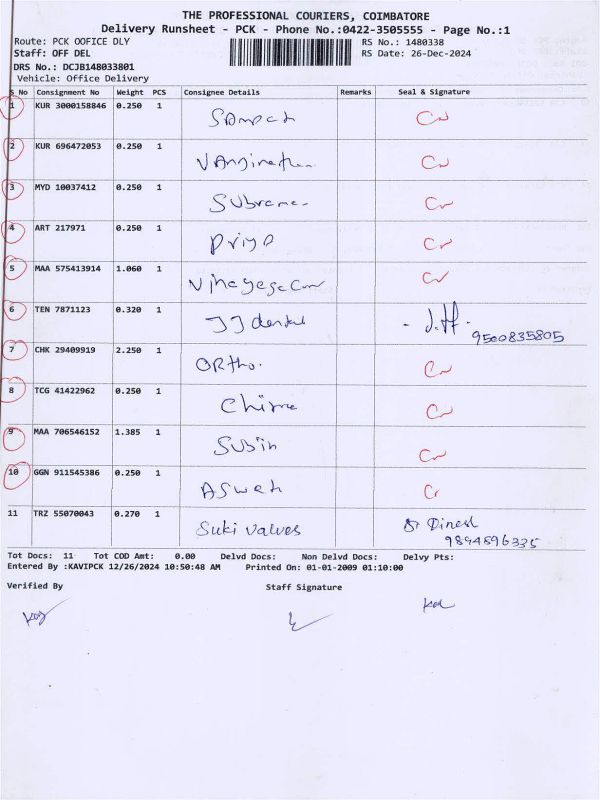 THE PROFESSIONAL COURIERS, COIMBATORE
Delivery Runsheet - PCK - Phone No.:0422-3505555 - Page No.:1
Route: PCK OOFICE DLY RS No.: 1480338
Staff: OFF DEL RS Date: 26-Dec-2024
DRS No.: DCJB148033801
Vehicle: Office Delivery
S No Consignment No Weight PCS Consignee Details Remarks Seal & Signature
1 KUR 3000158846 0.250 1 Sampath
2 KUR 696472053 0.250 1
3 MYD 10037412 0.250 1
4 ART 217971 0.250 1 Priya
5 MAA 575413914 1.060 1
6 TEN 7871123 0.320 1 JJ dental 9500835805
7 CHK 29409919 2.250 1 ORtho.
8 TCG 41422962 0.250 1
9 MAA 706546152 1.385 1 Subin
10 GGN 911545386 0.250 1
11 TRZ 55070043 0.270 1 Suki valves Dinesh
9894896335
Tot Docs: 11 Tot COD Amt: 0.00 Delvd Docs: Non Delvd Docs: Delvy Pts:
Entered By :KAVIPCK 12/26/2024 10:50:48 AM Printed On: 01-01-2009 01:10:00
Verified By Staff Signature